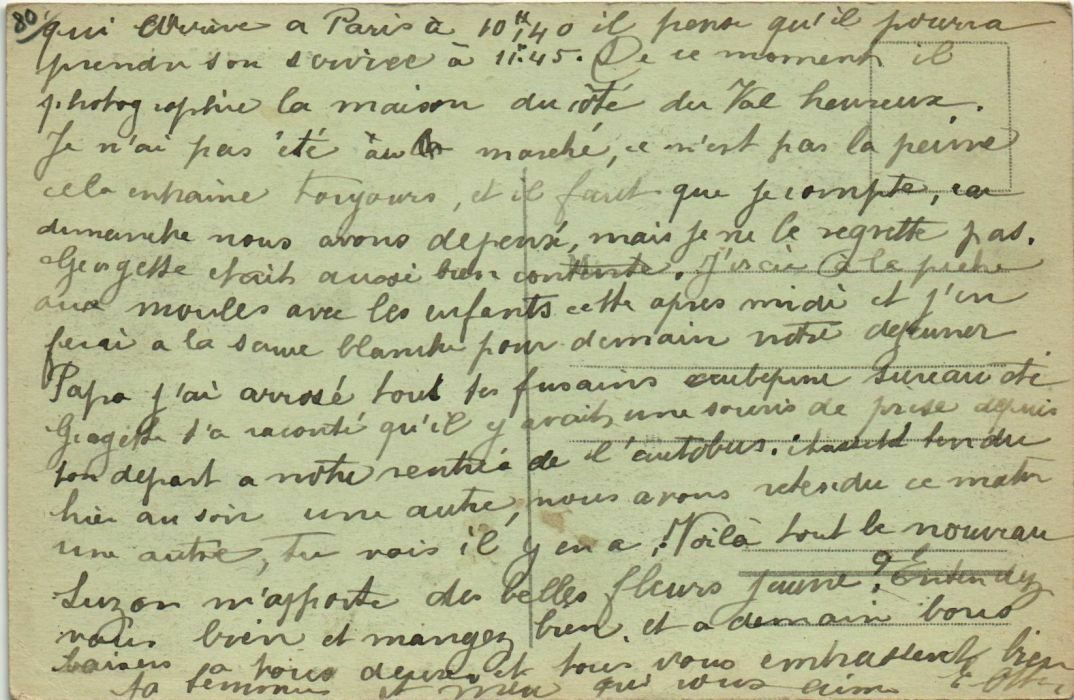 80
qui arrive a Paris à 10H,40 il pense qu'il pourra
prendre son service à 11H.45. De ce moment il
photographie la maison du côté du Val heureux.
Je n'ai pas été au marché, ce n'est pas la peine
cela entraine toujours, et il faut que je compte, car
dimanche nous avons depensé, mais je ne le regrette pas.
Georgette etait aussi bien contente. J'irai à la peche
aux moules avec les enfants cette apres midi et j'en
ferai a la sauce blanche pour demain notre dejeuner
Papa j'ai arrosé tout tes fusains aubepine sureau etc
Georgette t'a raconté qu'il y avait une souris de prise depuis
ton depart a notre rentrée de l'autobus. tendu
hier au soir une autre, nous avons retendu ce matin
une autre, tu vois il y en a ! Voilà tout le nouveau
Suzon m'apporte des belles fleurs jaune. Entendez
vous bien et mangez bien. et a demain bons
baisers a vous deux et tous vous embrassent bien
ta femme et qui vous aime